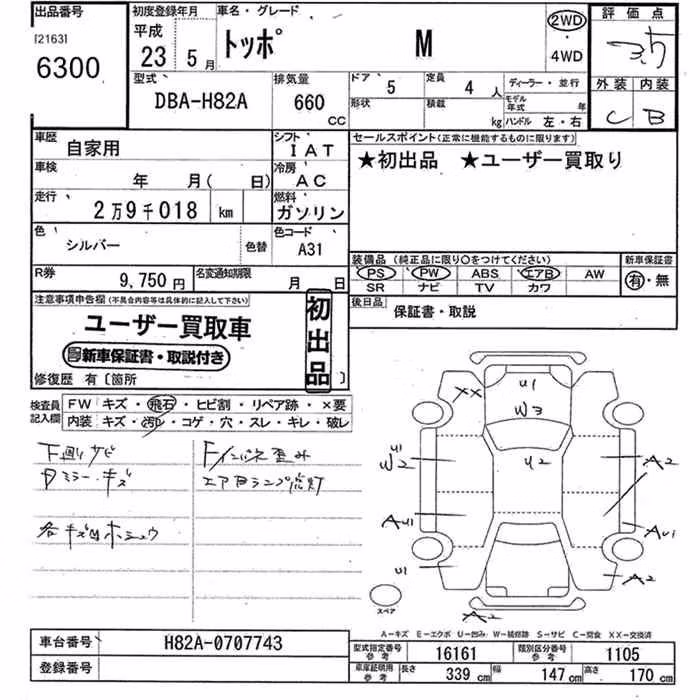 出品番号
[2163]
6300
初度登録年月
平成
23 5月
車名・グレード
トッポ M
2WD
・
4WD
評価点
3.5
外装 内装
C B
型式
DBA-H82A
排気量
660
CC
ドア 5
定員 4 人
ディーラー・並行
形状
積載 kg
モデル年式 年
ハンドル 左・右
車歴 自家用
シフト IAT
車検 年 月( 日)
冷房 AC
走行 2万9千018 km
燃料 ガソリン
色 シルバー 色替
色コード A31
R券 9,750円
名変通知期限 月 日
セールスポイント(正常に機能するものに限ります)
★初出品 ★ユーザー買取り
装備品 (純正品に限り○をつけてください)
新車保証書
PS PW ABS エアB AW
SR ナビ TV カワ
有・無
後日品 保証書・取説
注意事項申告欄(不具合内容等は具体的に記入して下さい)
ユーザー買取車
新車保証書・取説付き
初出品
修復歴 有〔箇所 〕
検査員記入欄
FW キズ・飛石・ヒビ割・リペア跡・×要
内装 キズ・汚れ・コゲ・穴・スレ・キレ・破レ
下廻リサビ
ミラーキズ
F/インパネ歪み
エアBランプ点灯
各キズ凹ホシュウ
XX
U1
W3
U2
U1
W2
A2
AU1
AU1
U1
A2
A2
スペア
A−キズ E−エクボ U−凹み W−補修跡 S−サビ C−腐食 XX−交換済
車台番号 H82A-0707743
登録番号
型式指定番号 参考 16161
類別区分番号 参考 1105
車庫証明用 参考 長さ 339 cm 幅 147 cm 高さ 170 cm